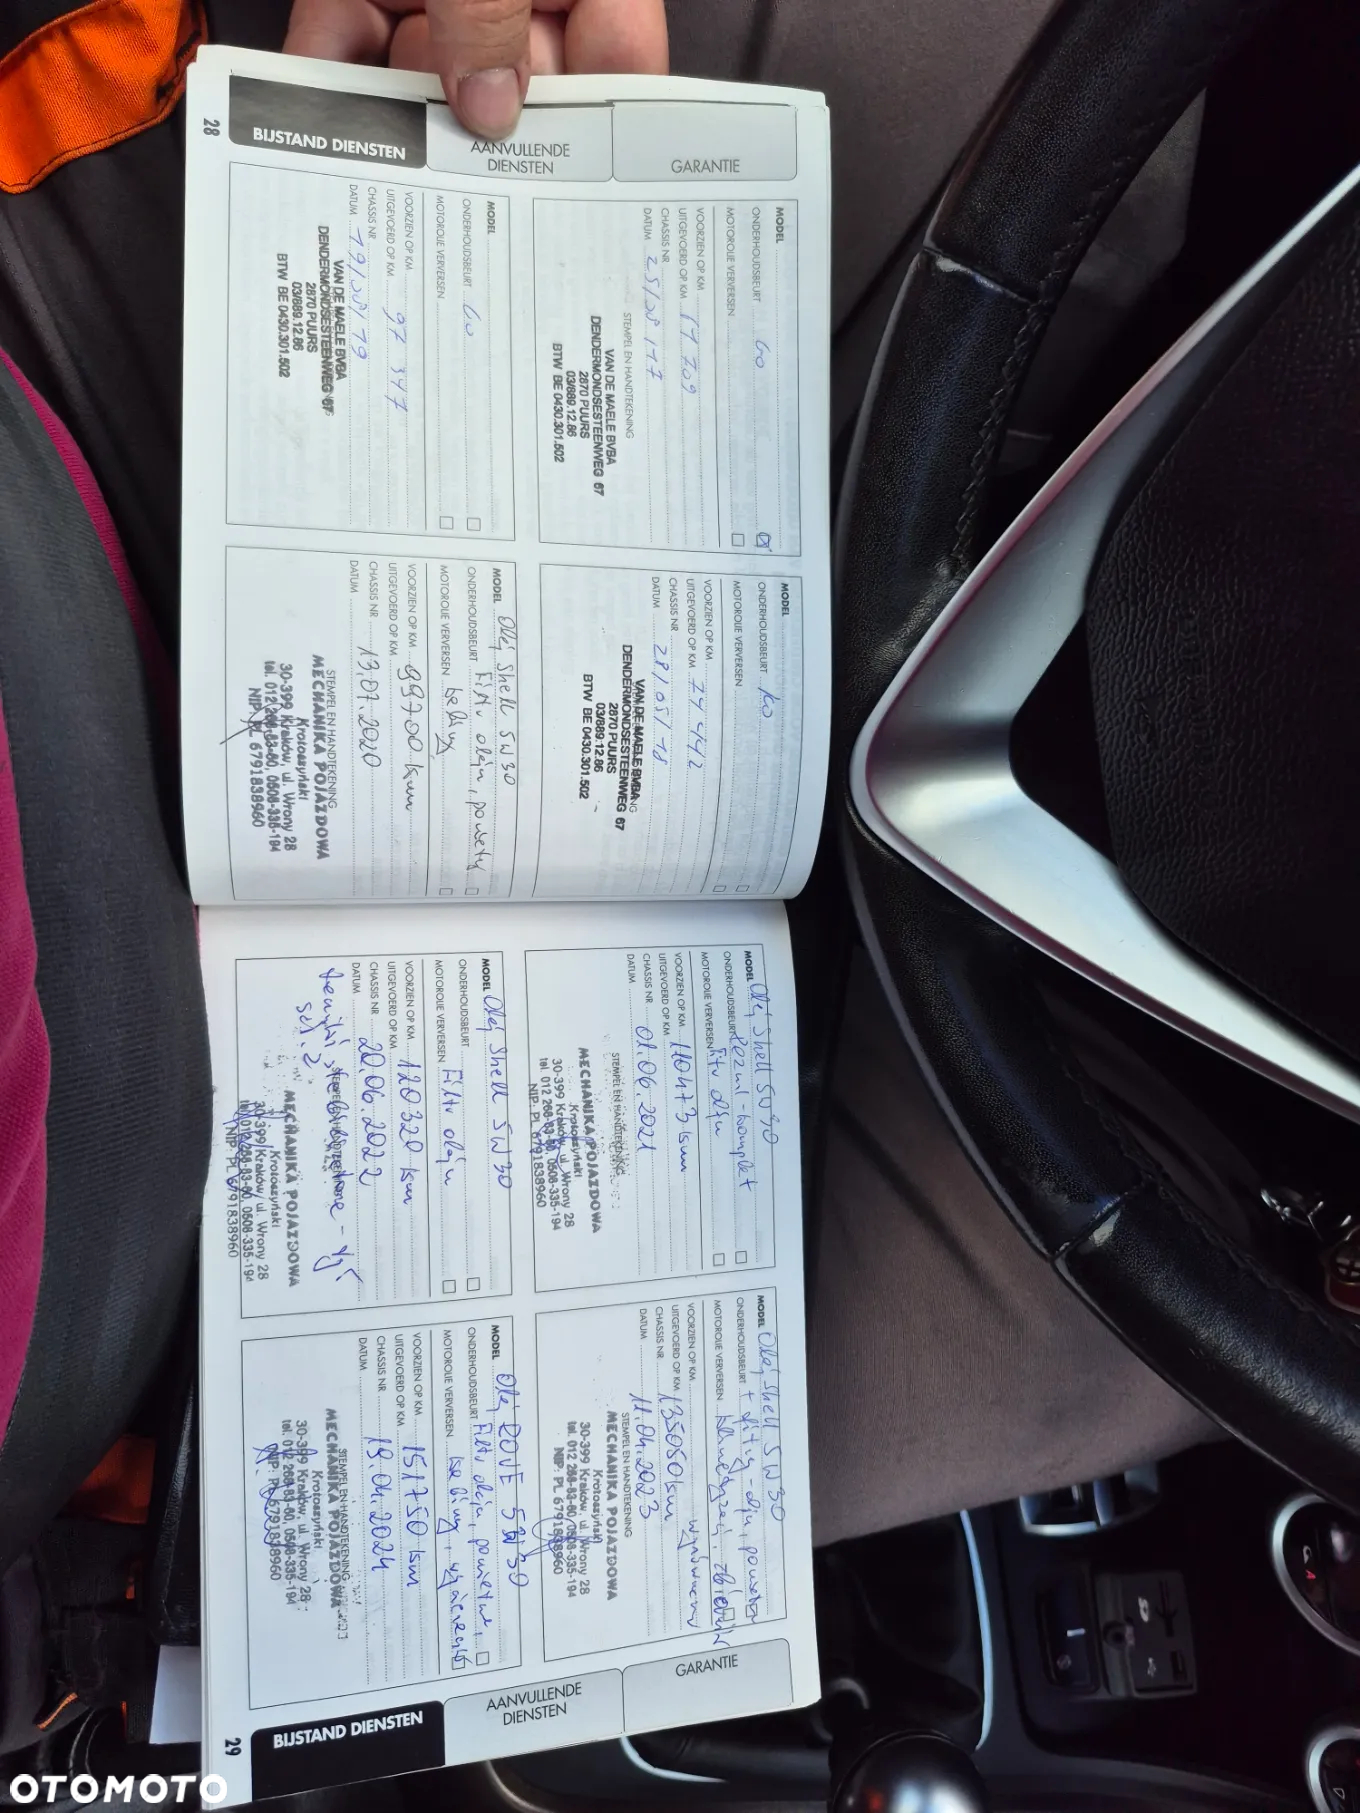 28
BIJSTAND DIENSTEN
AANVULLENDE
DIENSTEN
GARANTIE
MODEL
ONDERHOUDSBEURT 60
MOTOROLIE VERVERSEN
VOORZIEN OP KM
UITGEVOERD OP KM 67 709
CHASSIS NR
DATUM 25/08/17
STEMPEL EN HANDTEKENING
VAN DE MAELE BVBA
DENDERMONDSESTEENWEG 67
2870 PUURS
03/889.12.86
BTW BE 0430.301.502
MODEL
ONDERHOUDSBEURT
MOTOROLIE VERVERSEN
VOORZIEN OP KM
UITGEVOERD OP KM 74 442
CHASSIS NR
DATUM 28/05/18
VAN DE MAELE BVBA
DENDERMONDSESTEENWEG 67
2870 PUURS
03/889.12.86
BTW BE 0430.301.502
MODEL
ONDERHOUDSBEURT 60
MOTOROLIE VERVERSEN
VOORZIEN OP KM
UITGEVOERD OP KM 97 347
CHASSIS NR
DATUM 19/08/19
VAN DE MAELE BVBA
DENDERMONDSESTEENWEG 67
2870 PUURS
03/889.12.86
BTW BE 0430.301.502
MODEL Olej Shell 5W30
ONDERHOUDSBEURT Filtr oleju, powietrza
MOTOROLIE VERVERSEN kabiny
VOORZIEN OP KM 99700 km
UITGEVOERD OP KM
CHASSIS NR 13.07.2020
DATUM
STEMPEL EN HANDTEKENING
MECHANIKA POJAZDOWA
Krotoszyński
30-399 Kraków, ul. Wrony 28
tel. 012 268-83-80, 0508-335-194
NIP: PL 6791838960
MODEL Olej Shell 5W30
ONDERHOUDSBEURT rozrząd - komplet
MOTOROLIE VERVERSEN Filtr oleju
VOORZIEN OP KM 110473 km
UITGEVOERD OP KM
CHASSIS NR 01.06.2021
DATUM
STEMPEL EN HANDTEKENING
MECHANIKA POJAZDOWA
Krotoszyński
30-399 Kraków, ul. Wrony 28
tel. 012 268-83-80, 0508-335-194
NIP: PL 6791838960
MODEL Olej Shell 5W30
ONDERHOUDSBEURT + filtry - oleju, powietrza
MOTOROLIE VERVERSEN
VOORZIEN OP KM
UITGEVOERD OP KM 135050 km
CHASSIS NR
DATUM 11.04.2023
STEMPEL EN HANDTEKENING
MECHANIKA POJAZDOWA
Krotoszyński
30-399 Kraków, ul. Wrony 28
tel. 012 268-83-80, 0508-335-194
NIP: PL 6791838960
MODEL Olej Shell 5W30
ONDERHOUDSBEURT
MOTOROLIE VERVERSEN Filtr oleju
VOORZIEN OP KM 120320 km
UITGEVOERD OP KM
CHASSIS NR 20.06.2022
DATUM
szt. 2
MECHANIKA POJAZDOWA
Krotoszyński
30-399 Kraków, ul. Wrony 28
tel. 012 268-83-80, 0508-335-194
NIP: PL 6791838960
MODEL Olej DOVE 5W30
ONDERHOUDSBEURT Filtr oleju, powietrze,
MOTOROLIE VERVERSEN kabiny,
VOORZIEN OP KM 151750 km
UITGEVOERD OP KM
CHASSIS NR 19.04.2024
DATUM
STEMPEL EN HANDTEKENING
MECHANIKA POJAZDOWA
Krotoszyński
30-399 Kraków, ul. Wrony 28
tel. 012 268-83-80, 0508-335-194
NIP: PL 6791838960
GARANTIE
AANVULLENDE
DIENSTEN
BIJSTAND DIENSTEN
29
OTOMOTO